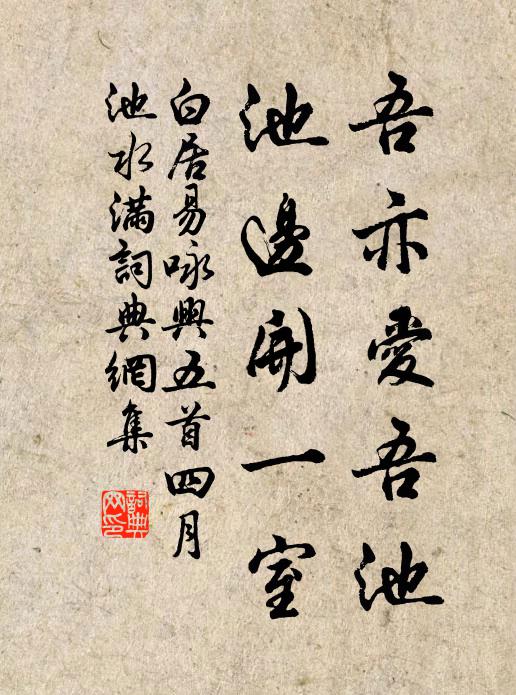 吾亦愛吾池
池邊開一室
白居易咏興五首四月
池水滿詞典網集
詞典网印